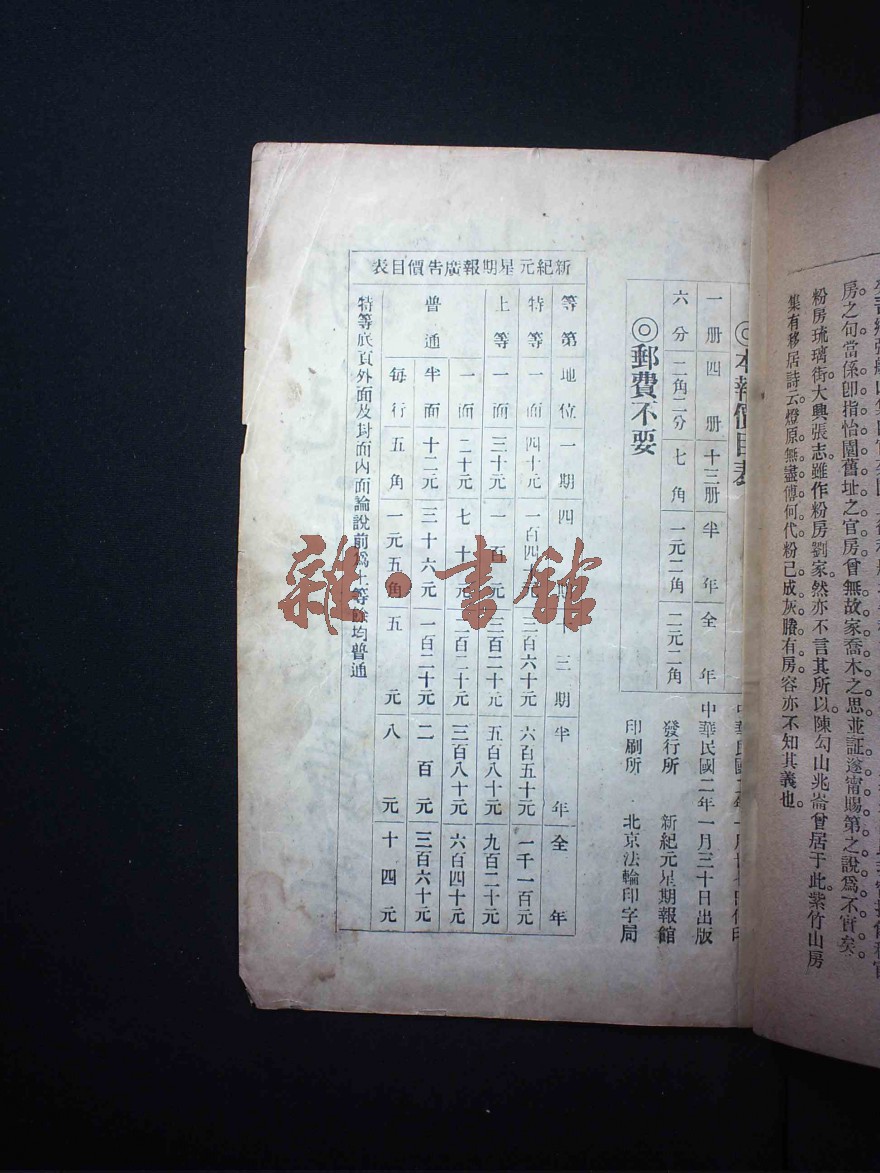 房之句當係卽指怡園舊址之官房曾無故家喬木之思並証遂甯賜第之說爲不實矣
粉房琉璃街大興張志雖作粉房劉家然亦不言其所以陳勾山兆崙曾居于此紫竹山房
集有移居詩云燈原無盡傳何代粉已成灰賸有房容亦不知其義也
◎本報價目表
一册 四册 十三册 半年 全年
六分 二角二分 七角 一元二角 二元二角
◎郵費不要
中華民國二年一月三十日出版
發行所 新紀元星期報館
印刷所 北京法輪印字局
新紀元星期報廣告價目表
等第 地位 一期 四期 十三期 半年 全年
特等 一面 四十元 一百四十元 三百六十元 六百五十元 一千一百元
上等 一面 三十元 一百元 三百二十元 五百八十元 九百二十元
普通 一面 二十元 七十元 二百二十元 三百八十元 六百四十元
半面 十二元 三十六元 一百二十元 二百元 三百六十元
每行 五角 一元五角 五元 八元 十四元
特等底頁外面及封面內面論說前爲上等餘均普通
雜·書館